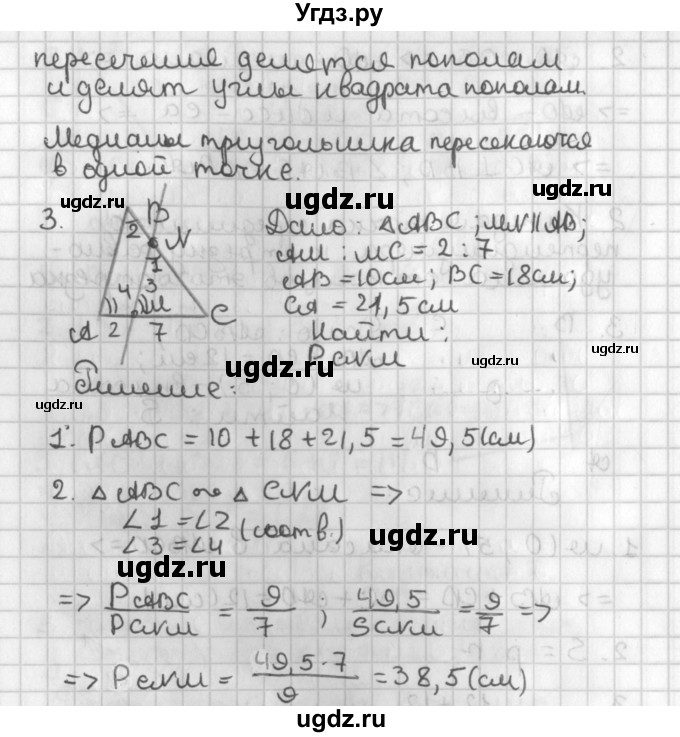 Угдз.ру
пересечения делятся пополам
и делят углы квадрата пополам.
Медианы треугольника пересекаются
в одной точке.
ugdz.ru
ugdz.ru
ugdz.ru
3. B 2 N 1 4 3 M A 2 7 C
Дано: △ABC; MN∥AB;
AM : MC = 2 : 7
AB = 10 см; BC = 18 см;
CA = 21,5 см
ugdz.ru
Найти:
P CNM
ugdz.ru
ugdz.ru
ugdz.ru
Решение:
1. P ABC = 10 + 18 + 21,5 = 49,5 (см)
ugdz.ru
2. △ ABC ∾ △ CNM =>
∠1 = ∠2 (соотв.)
∠3 = ∠4
ugdz.ru
ugdz.ru
=> P ABC / P CNM = 9/7 ; 49,5 / S CNM = 9/7 =>
=> P CNM = 49,5·7 / 9 = 38,5 (см)
ugdz.ru
ugdz.ru